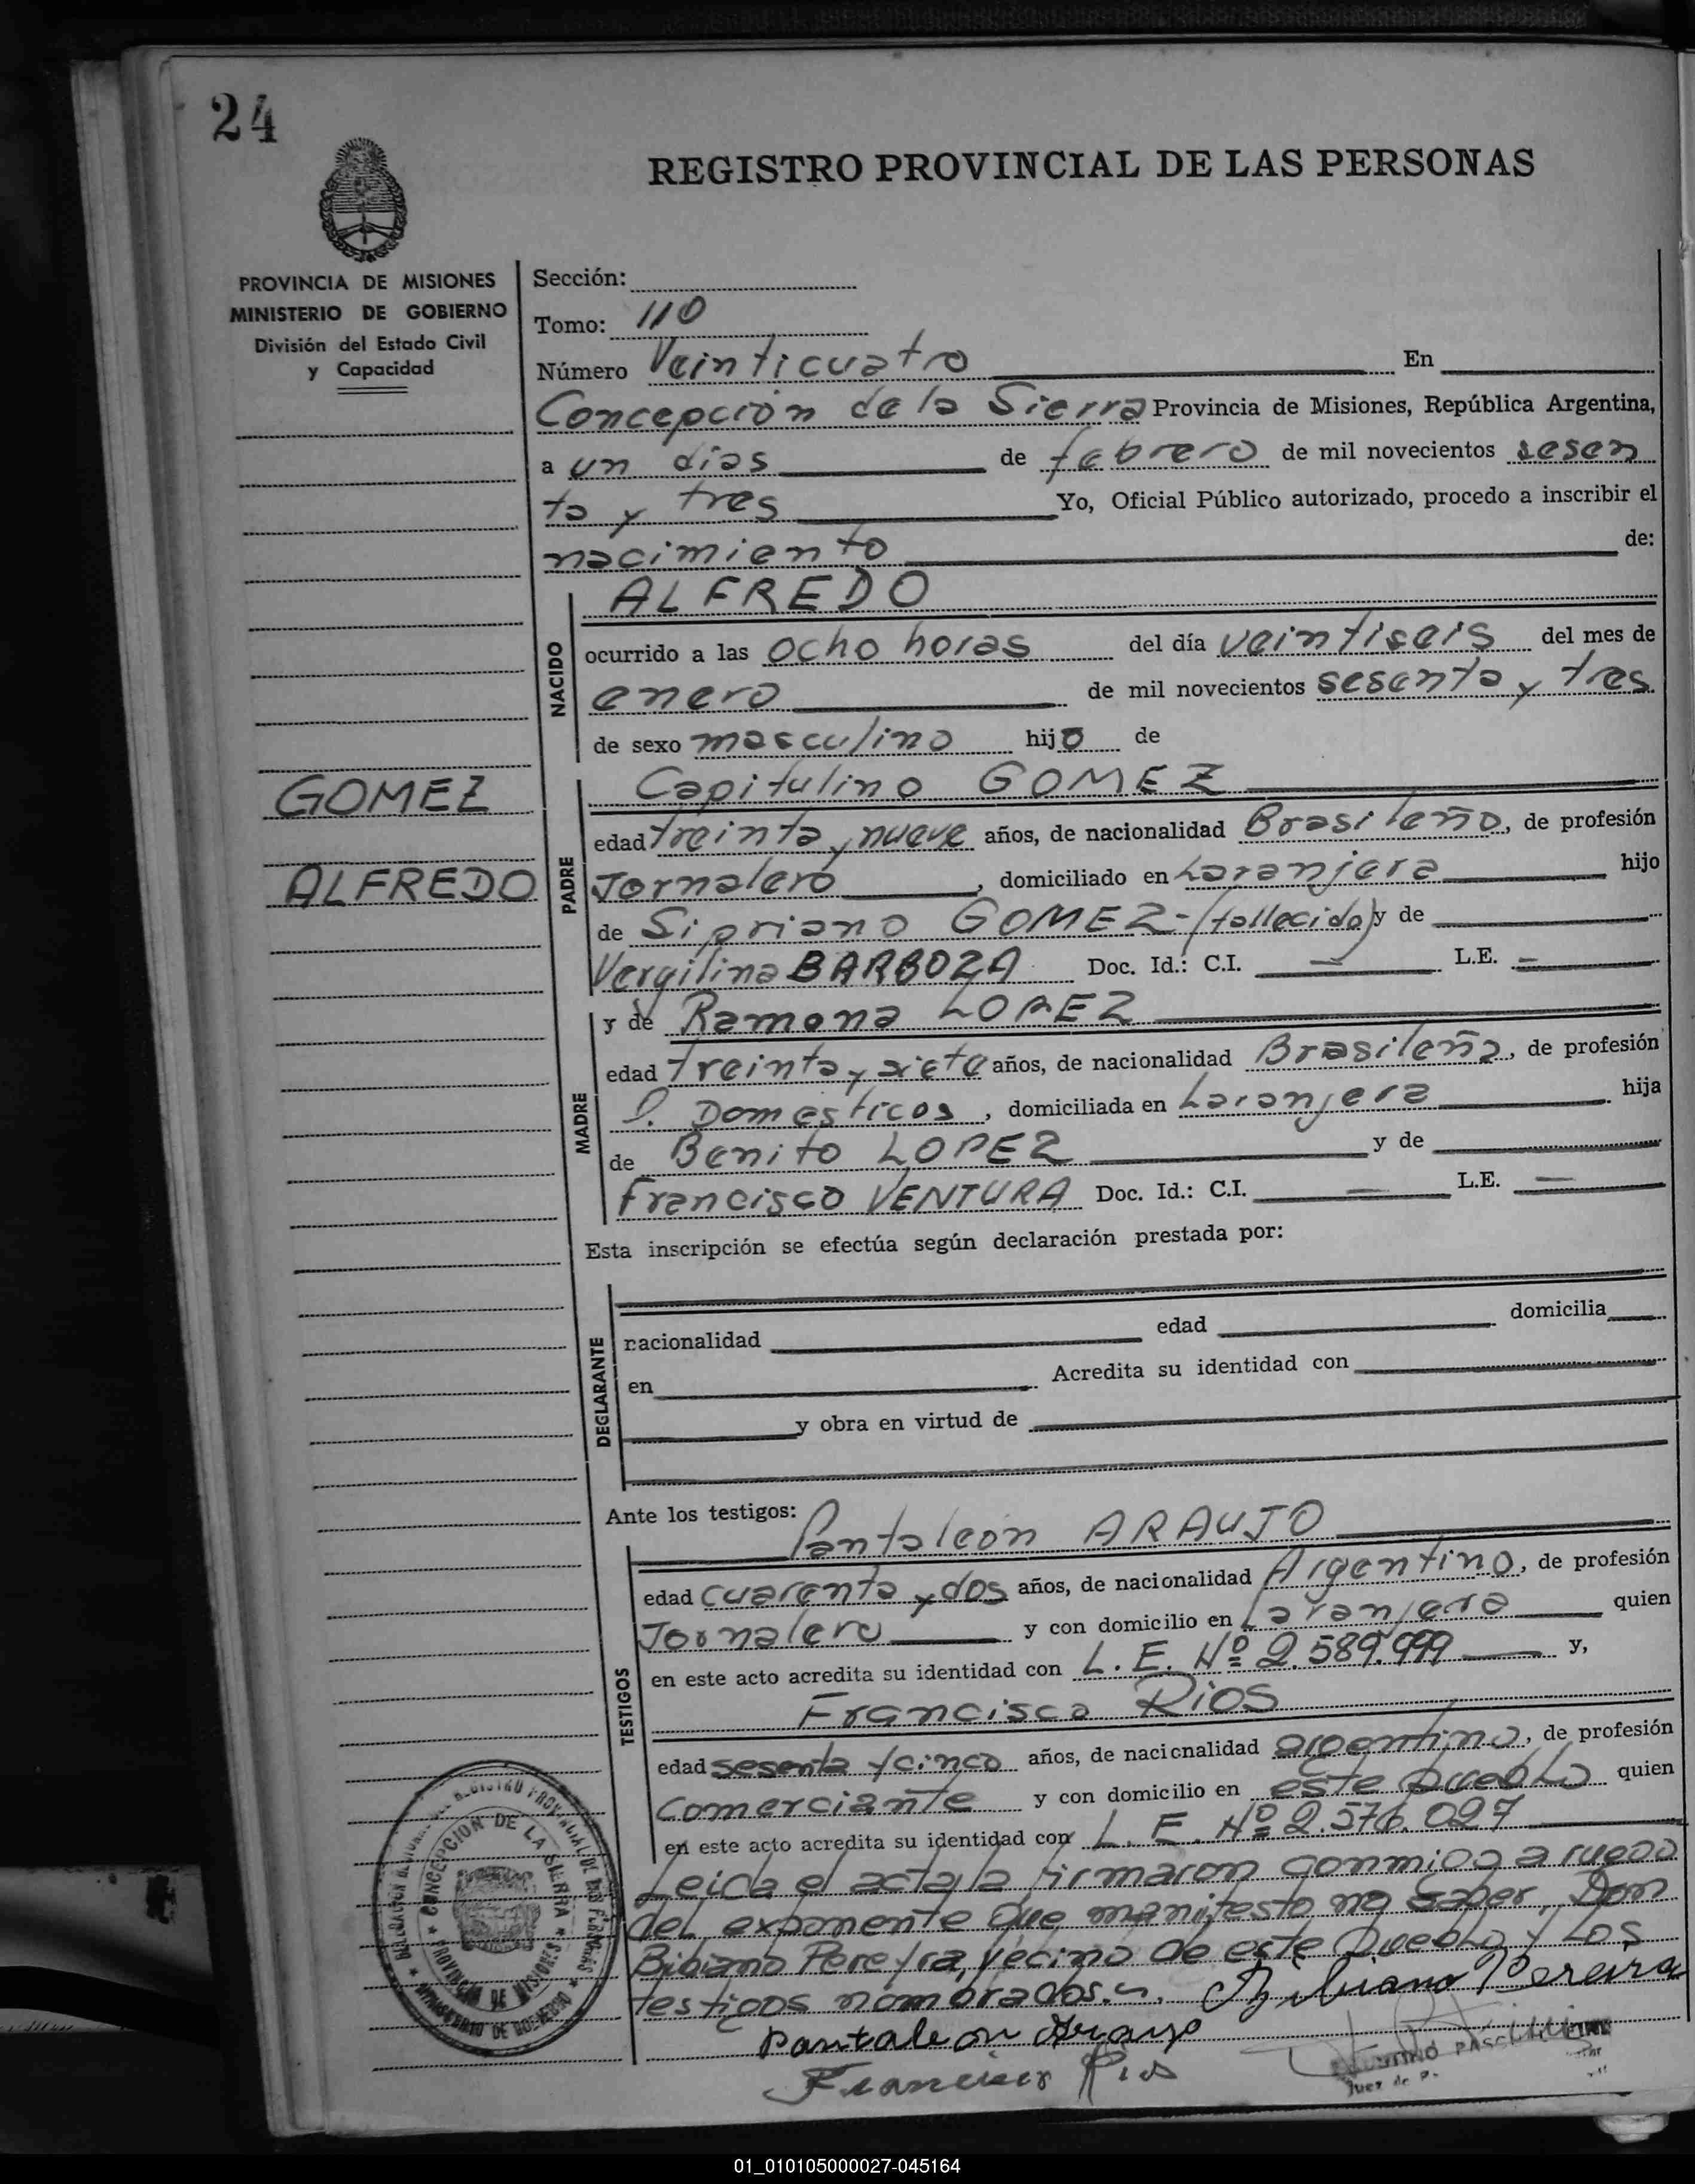 24
REGISTRO PROVINCIAL DE LAS PERSONAS
PROVINCIA DE MISIONES
MINISTERIO DE GOBIERNO
División del Estado Civil
y Capacidad
Sección:
Tomo: 110
Número Veinticuatro En
Concepción de la Sierra Provincia de Misiones, República Argentina,
a un dias de febrero de mil novecientos sesen
ta y tres Yo, Oficial Público autorizado, procedo a inscribir el
nacimiento de:
NACIDO
ALFREDO
ocurrido a las ocho horas del día veintiseis del mes de
enero de mil novecientos sesenta y tres
de sexo masculino hijo de
GOMEZ
ALFREDO
PADRE
Capitulino GOMEZ
edad treinta y nueve años, de nacionalidad Brasileño, de profesión
Jornalero, domiciliado en Laranjera hijo
de Sipriano GOMEZ-(fallecido) y de
Vergilina BARBOZA Doc. Id.: C.I. — L.E. —
MADRE
y de Ramona LOPEZ
edad treinta y siete años, de nacionalidad Brasileña, de profesión
Q. Domesticos, domiciliada en Laranjera hija
de Benito LOPEZ y de
Francisco VENTURA Doc. Id.: C.I. — L.E. —
Esta inscripción se efectúa según declaración prestada por:
DECLARANTE
nacionalidad edad domicilia
en Acredita su identidad con
y obra en virtud de
Ante los testigos:
TESTIGOS
Pantaleón ARAUJO
edad cuarenta y dos años, de nacionalidad Argentino, de profesión
Jornalero y con domicilio en Laranjera quien
en este acto acredita su identidad con L. E. Nº 2.589.999 y,
Francisco RiOS
edad sesenta y cinco años, de nacionalidad argentino, de profesión
comerciante y con domicilio en este pueblo quien
en este acto acredita su identidad con L. E. Nº 2.576.027
Leida el acta la firmaron conmigo a ruego
del exponente que manifesto no saber, Don
Bibiano Pereyra, vecino de este pueblo y Los
testigos nombrados.
Bibiano Pereira
Pantaleon Araujo
Francisco Rios
Juez de P.
CONCEPCION DE LA SIERRA
PROVINCIA DE MISIONES
MINISTERIO DE GOBIERNO
01_010105000027-045164